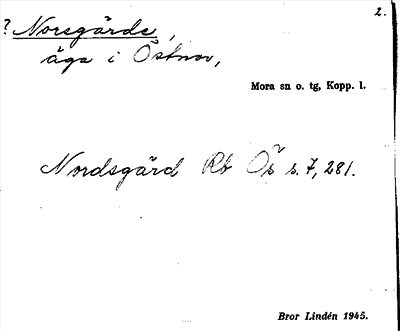 2.
? Norsgärde,
äga i Östnor,
Mora sn o. tg, Kopp. l.
Nordsgärd Rb Ös s. 7, 281.
Bror Lindén 1945.